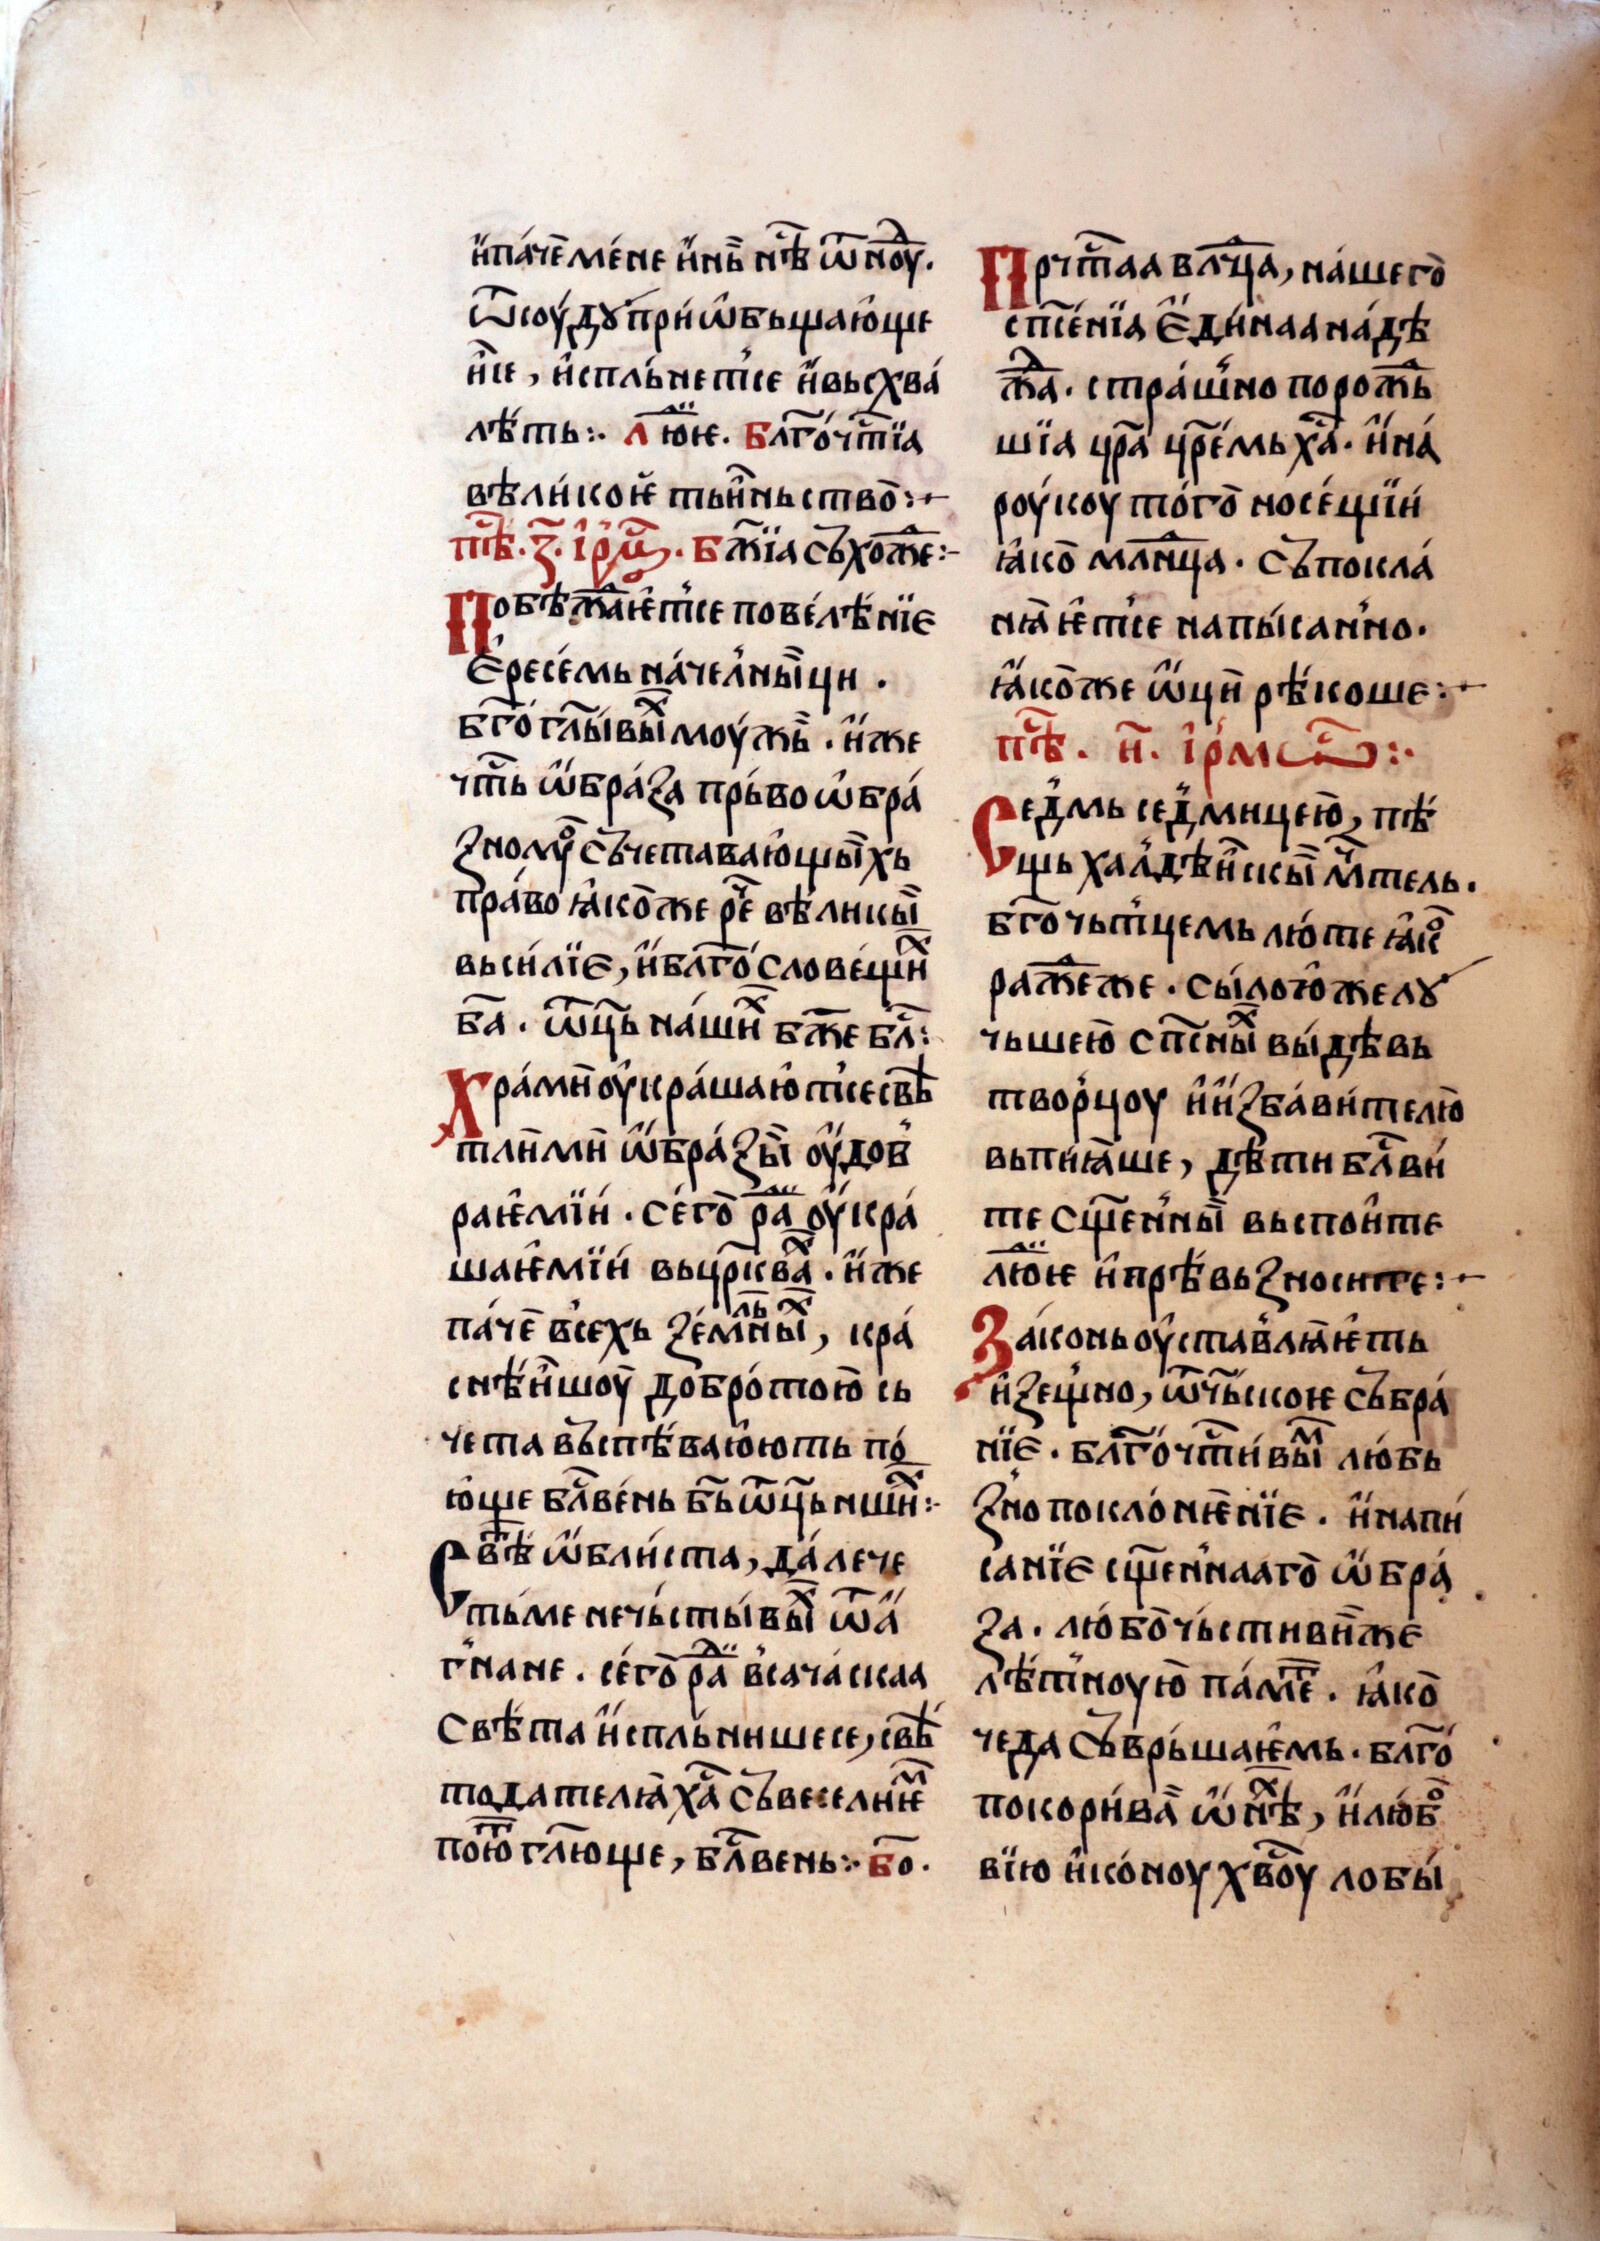 и҆па́че мене и҆нь нс҇тѣ ѿноу҆д.
ѿсюу́дꙋ при́ѡбьщаю҆ще
и҆се, и҆спль́нетсе и҆ въсхва́
лѣ́ть:· лю҆дїе. благо́чт҇їа
вѣли́кое тьи́ньство:·
пѣс҇. з҃. і҆рмⷭ. Бж҇їа съхож҇е:·
Побѣжа́е҆тсе повелѣ́нїе
є҆ресе́мь на́чел́ныици.
бг҃о гл҃ы́выⷯ моу́жь. и҆же
чт҇ь ѡ҆бра́за прь́во ѡ҆бра́
зномоу҆ съчетаваю҆щыхь
пра́во ꙗ҆коже рч҇е вѣликы
въси́лїе, и҆ благо́словещиⷯ
ба҃. ѿц҃ь на́шиⷯ бж҃е бл҃:
Хра́ми оу҆краша́ю҆тсе свѣ́
тлими ѡ҆бра́зы оу҆дов
рае҆мїи. сего̀ ра́ди оу҆кра́
шае҆мїи въ цр҃кваⷯ. и҆же
па́че всехь земльныⷯ, кра́
снѣ́ишоу добро́тою сь
чета въспѣва́ю҆ють по́
ю҆ще бл҃ве́нь бь҃ ѿц҃ь ншиⷯ:·
Свѣт ѡ҆бли́ста, да́лече
ть́ме нечь́сты́выⷯ ѿа҆
гнане. сего̀ ра́ди всꙗча́скаа
свѣ́та и҆спль́нишесе, свѣ́
тодателꙗ ха҃ съ веселие҆м
пою҆т гл҃юще, бл҃вень:· бо҃.
Прчт҇аа влⷣца, на́шего
сп҃се́нїа є҆ди́наа на́дѣ
жда. стра́шно порожь
шїа цр҃а цр҃емь ха҃. и҆ на́
роу́коу то́го носе́щїи
ꙗ҆ко млⷣнца. съ покла́
нꙗе҆тсе напы́санно.
ꙗ҆коже ѡ҆ци рѣ́коше:·
пѣс҇. и҃. і҆рмѡс:·
Седмь се́дмицею, пѣ́
щь халдѣискы мч҃тель.
бг҃очьтцемь лю́те ꙗ҆ко
ражеже. сы́лою҆ же лꙋ
чьшею сп҃сныⷯ вы́дѣвь
творцоу и҆ и҆зба́ви́телю
въпиꙗ҆ше, дѣти бл҃ви́
те сщ҃е́нны въспои҆те
лю҆дїе и҆ прѣвъзносите:·
Законь оу҆ста́влꙗе҆ть
и҆зещно, ѿчьское събра́
нїе. благо́чт҇и́выⷨ любь
зно покло́не҆нїе. и҆ напи́
санїе сщ҃е́ннааго ѡ҆бра́
за. лю́бочь́стивиже
лѣ́тноую па́меть. ꙗ҆ко
чеда съврь́шае҆мь. благо́
покори́ва ѡ҆ ниⷯѣ, и҆ любо
вїю и҆ко́ноу хв҃оу лобы́